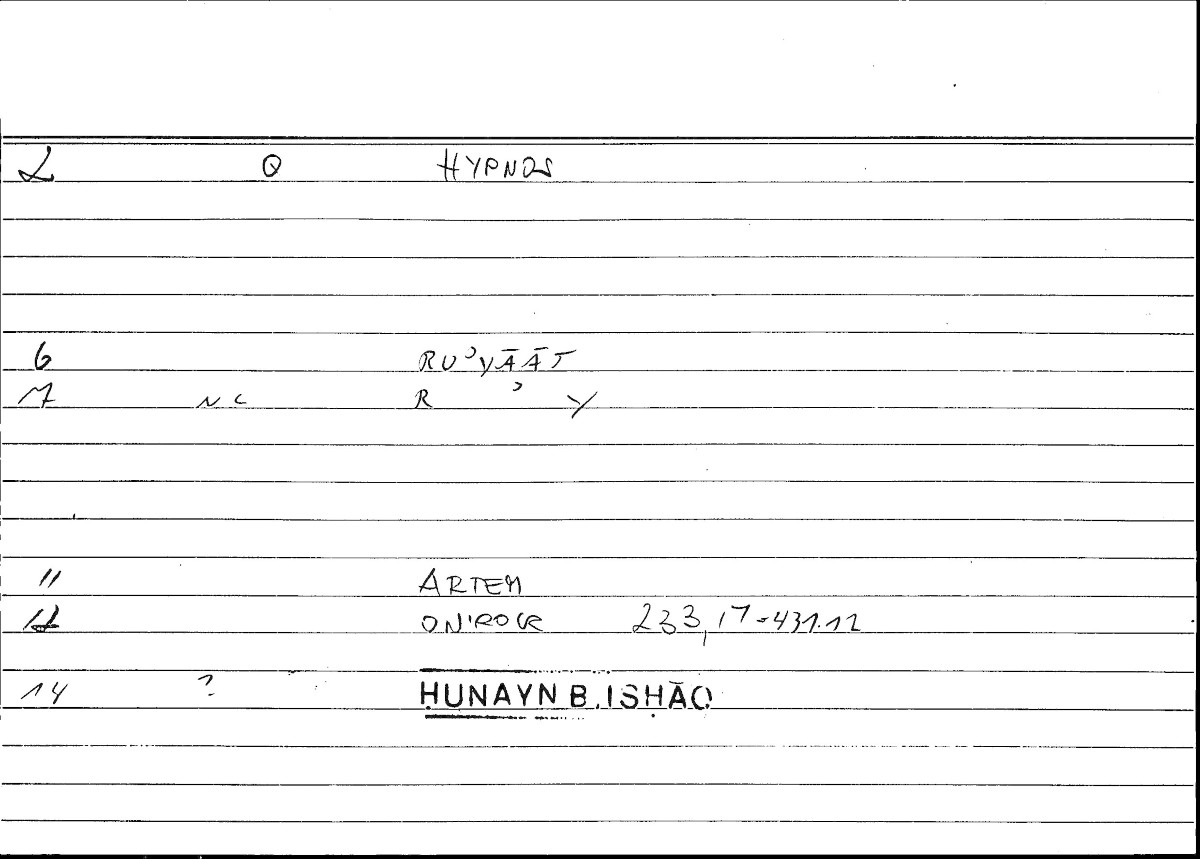 2 Q HYPNOS
6 RUʾYĀĀT
7 NC R ʾ Y
11 ARTEM
12 ONIROCR 233,17-431.12
14 ? ḤUNAYN B. ISḤĀQ